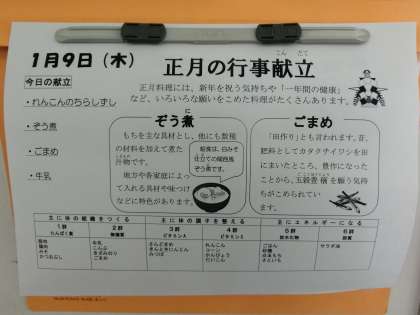 1月9日(木)
正月の行事献立
こんだて
今日の献立
・れんこんのちらしずし
・ぞう煮
・ごまめ
・牛乳
正月料理には、新年を祝う気持ちや「一年間の健康」
など、いろいろな願いをこめた料理がたくさんあります。
ぞう煮
に
もちを主な具材とし、他にも数種
の材料を加えて煮た
汁物です。
地方や各家庭によっ
て入れる具材や味つけ
などに特色があります。
給食は、白みそ
仕立ての関西風
ぞう煮です。
ごまめ
「田作り」とも言われます。昔、
肥料としてカタクチイワシを田
にまいたところ、豊作になった
ことから、五穀豊穣を願う気持
ちがこめられてい
ます。
主に体の組織をつくる
主に体の調子を整える
主にエネルギーになる
1群
たんぱく質
2群
無機質
3群
ビタミンA
4群
ビタミンC
5群
炭水化物
6群
脂質
鶏肉
かつおぶし
牛乳
こんぶ
きざみのり
ごまめ
さんどまめ
きんときにんじん
みつば
れんこん
コーン
かんぴょう
だいこん
ごはん
砂糖
さといも
サラダ油